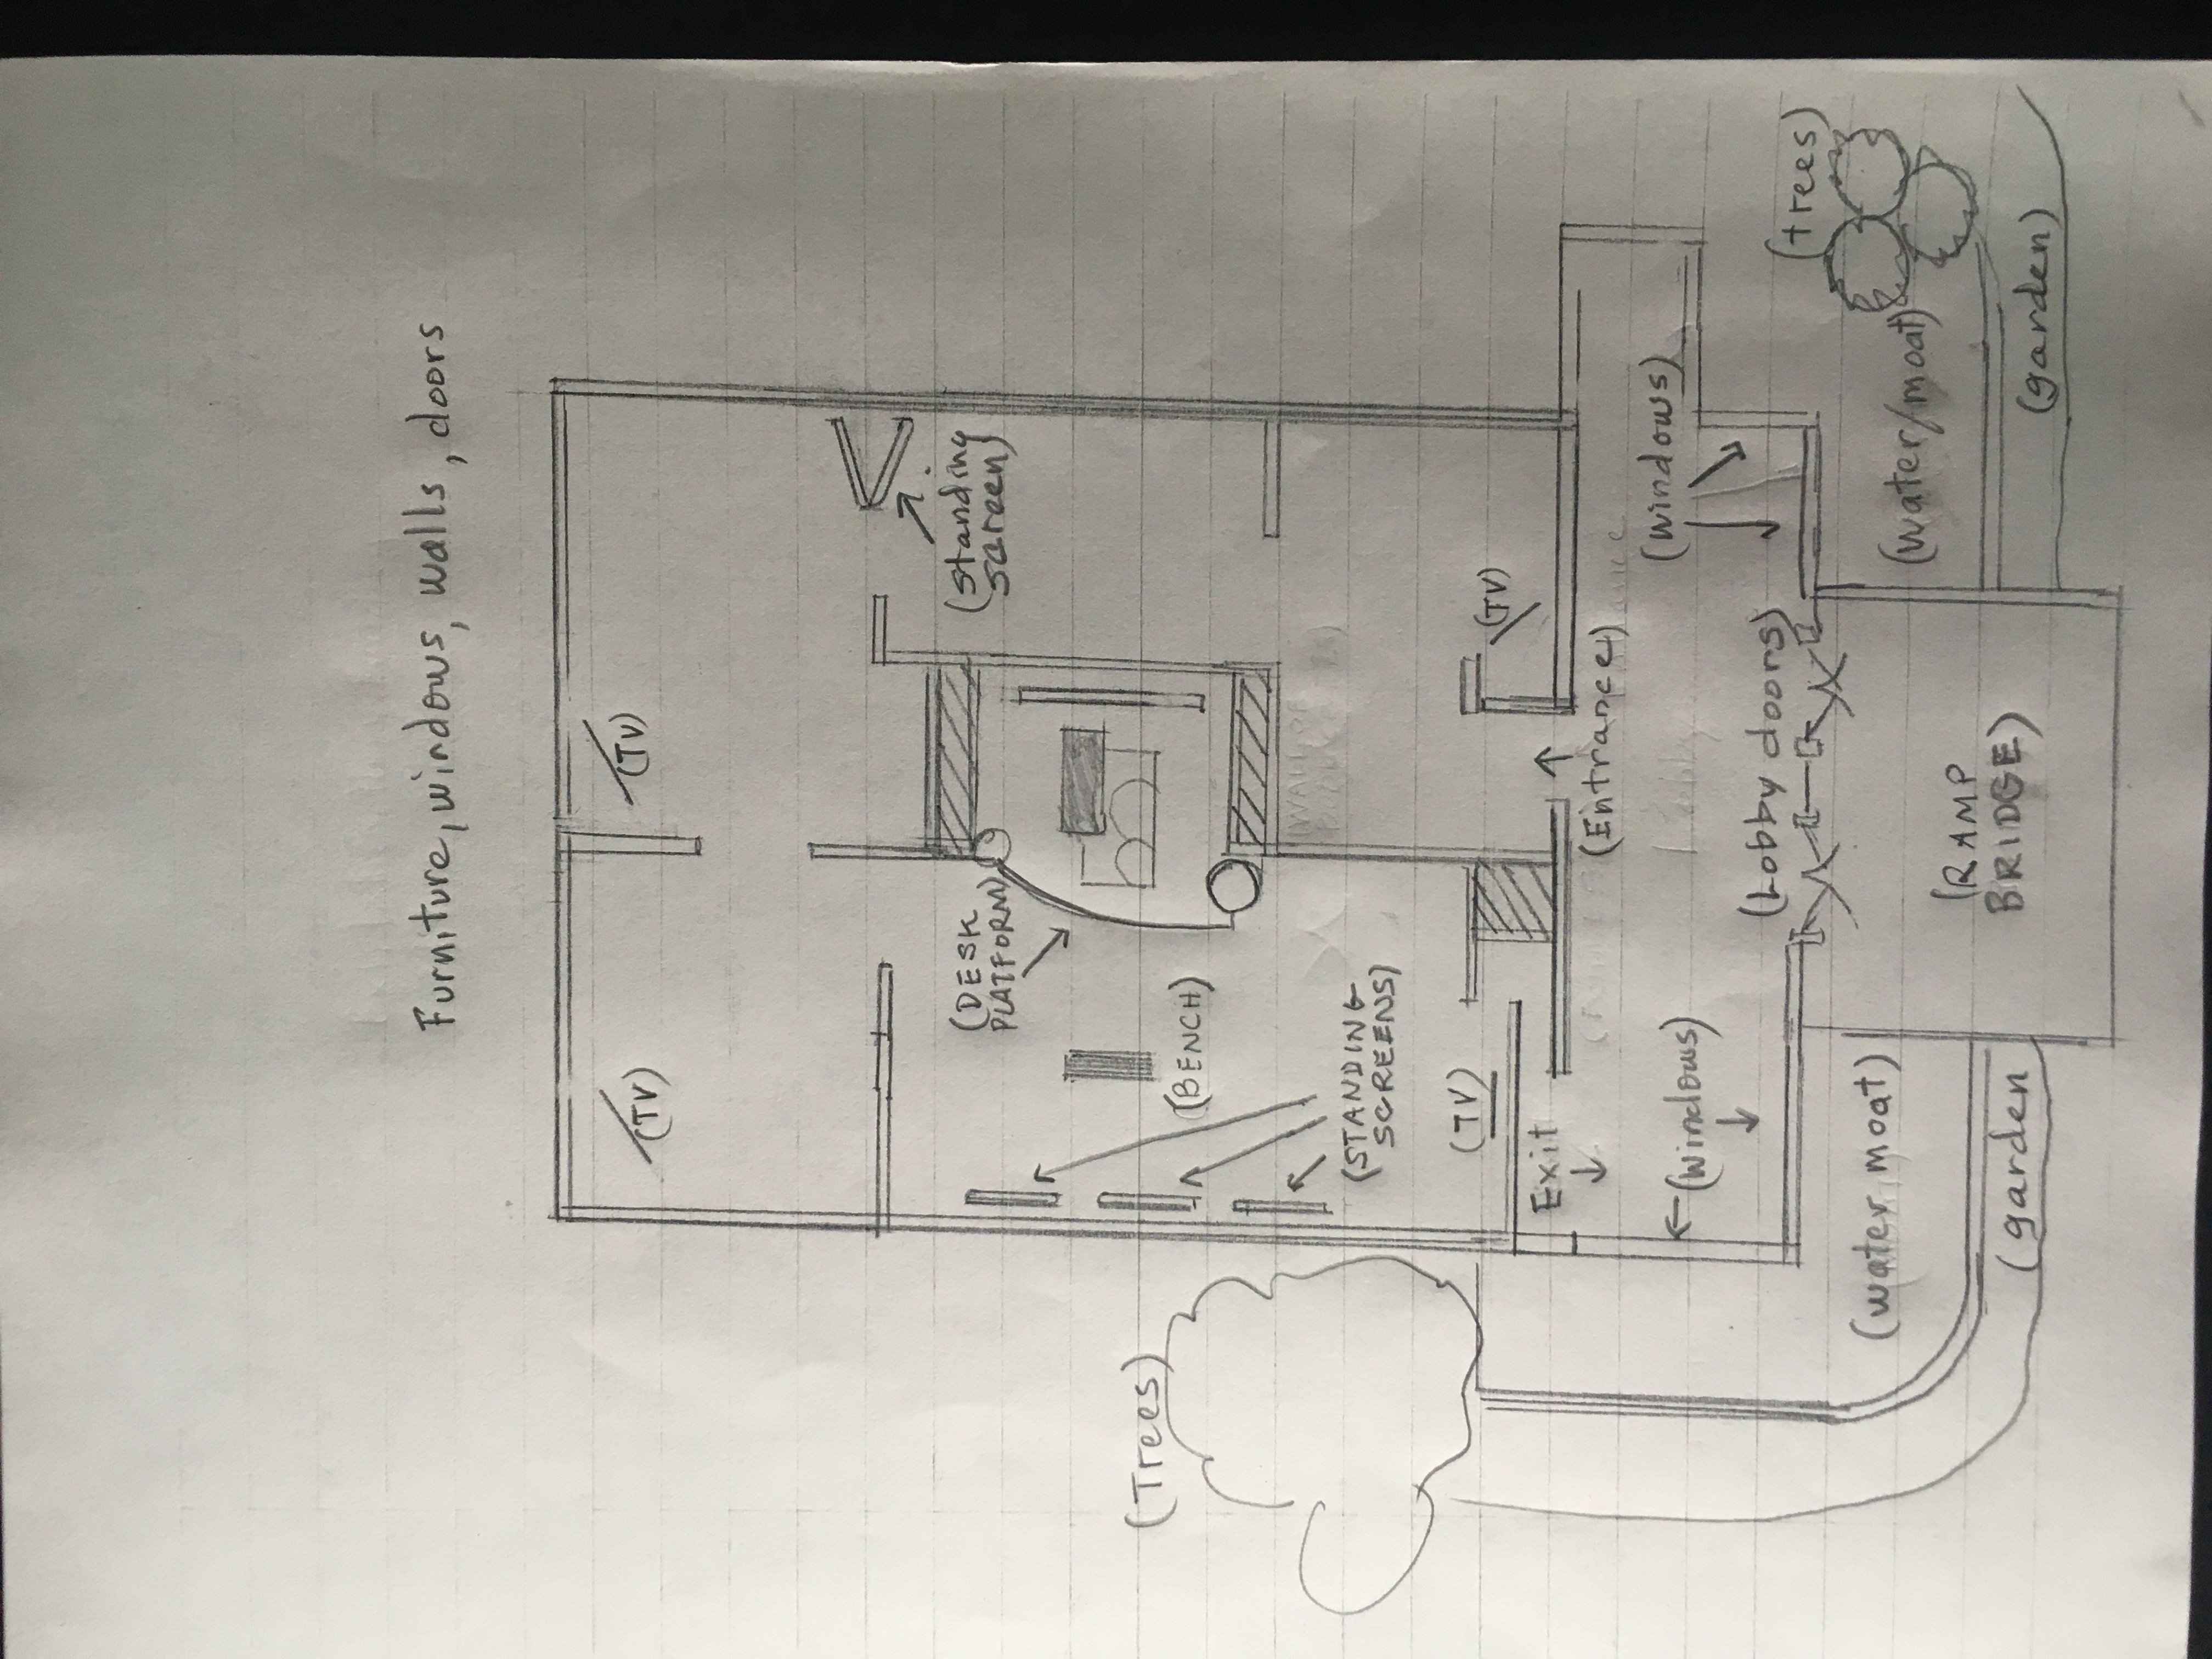 Furniture, windows, walls, doors
(TV)
(TV)
(DESK
PLATFORM)
(standing
screen)
(Trees)
(BENCH)
(WALL OF
(STANDING
SCREENS)
(TV)
(TV)
Exit
(Entrance)
(windows)
(windows)
(Lobby doors)
(trees)
(water moat)
(water/moat)
(RAMP
BRIDGE)
(garden
(garden)